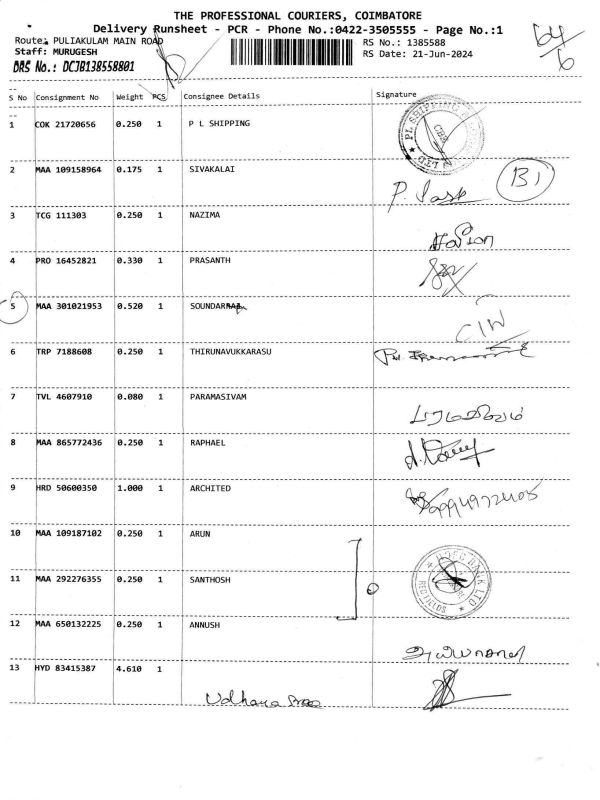 THE PROFESSIONAL COURIERS, COIMBATORE
Delivery Runsheet - PCR - Phone No.:0422-3505555 - Page No.:1
Route: PULIAKULAM MAIN ROAD
RS No.: 1385588
Staff: MURUGESH
RS Date: 21-Jun-2024
DRS No.: DCJB138558801
64/6
S No Consignment No Weight PCS Consignee Details Signature
1 COK 21720656 0.250 1 P L SHIPPING
PL SHIPPING LTD
2 MAA 109158964 0.175 1 SIVAKALAI
B1
3 TCG 111303 0.250 1 NAZIMA
4 PRO 16452821 0.330 1 PRASANTH
5 MAA 301021953 0.520 1 SOUNDAR
6 TRP 7188608 0.250 1 THIRUNAVUKKARASU
7 TVL 4607910 0.080 1 PARAMASIVAM
பரமசிவம்
8 MAA 865772436 0.250 1 RAPHAEL
9 HRD 50600350 1.000 1 ARCHITED
10 MAA 109187102 0.250 1 ARUN
11 MAA 292276355 0.250 1 SANTHOSH
BANK LTD
12 MAA 650132225 0.250 1 ANNUSH
13 HYD 83415387 4.610 1
Udhaya